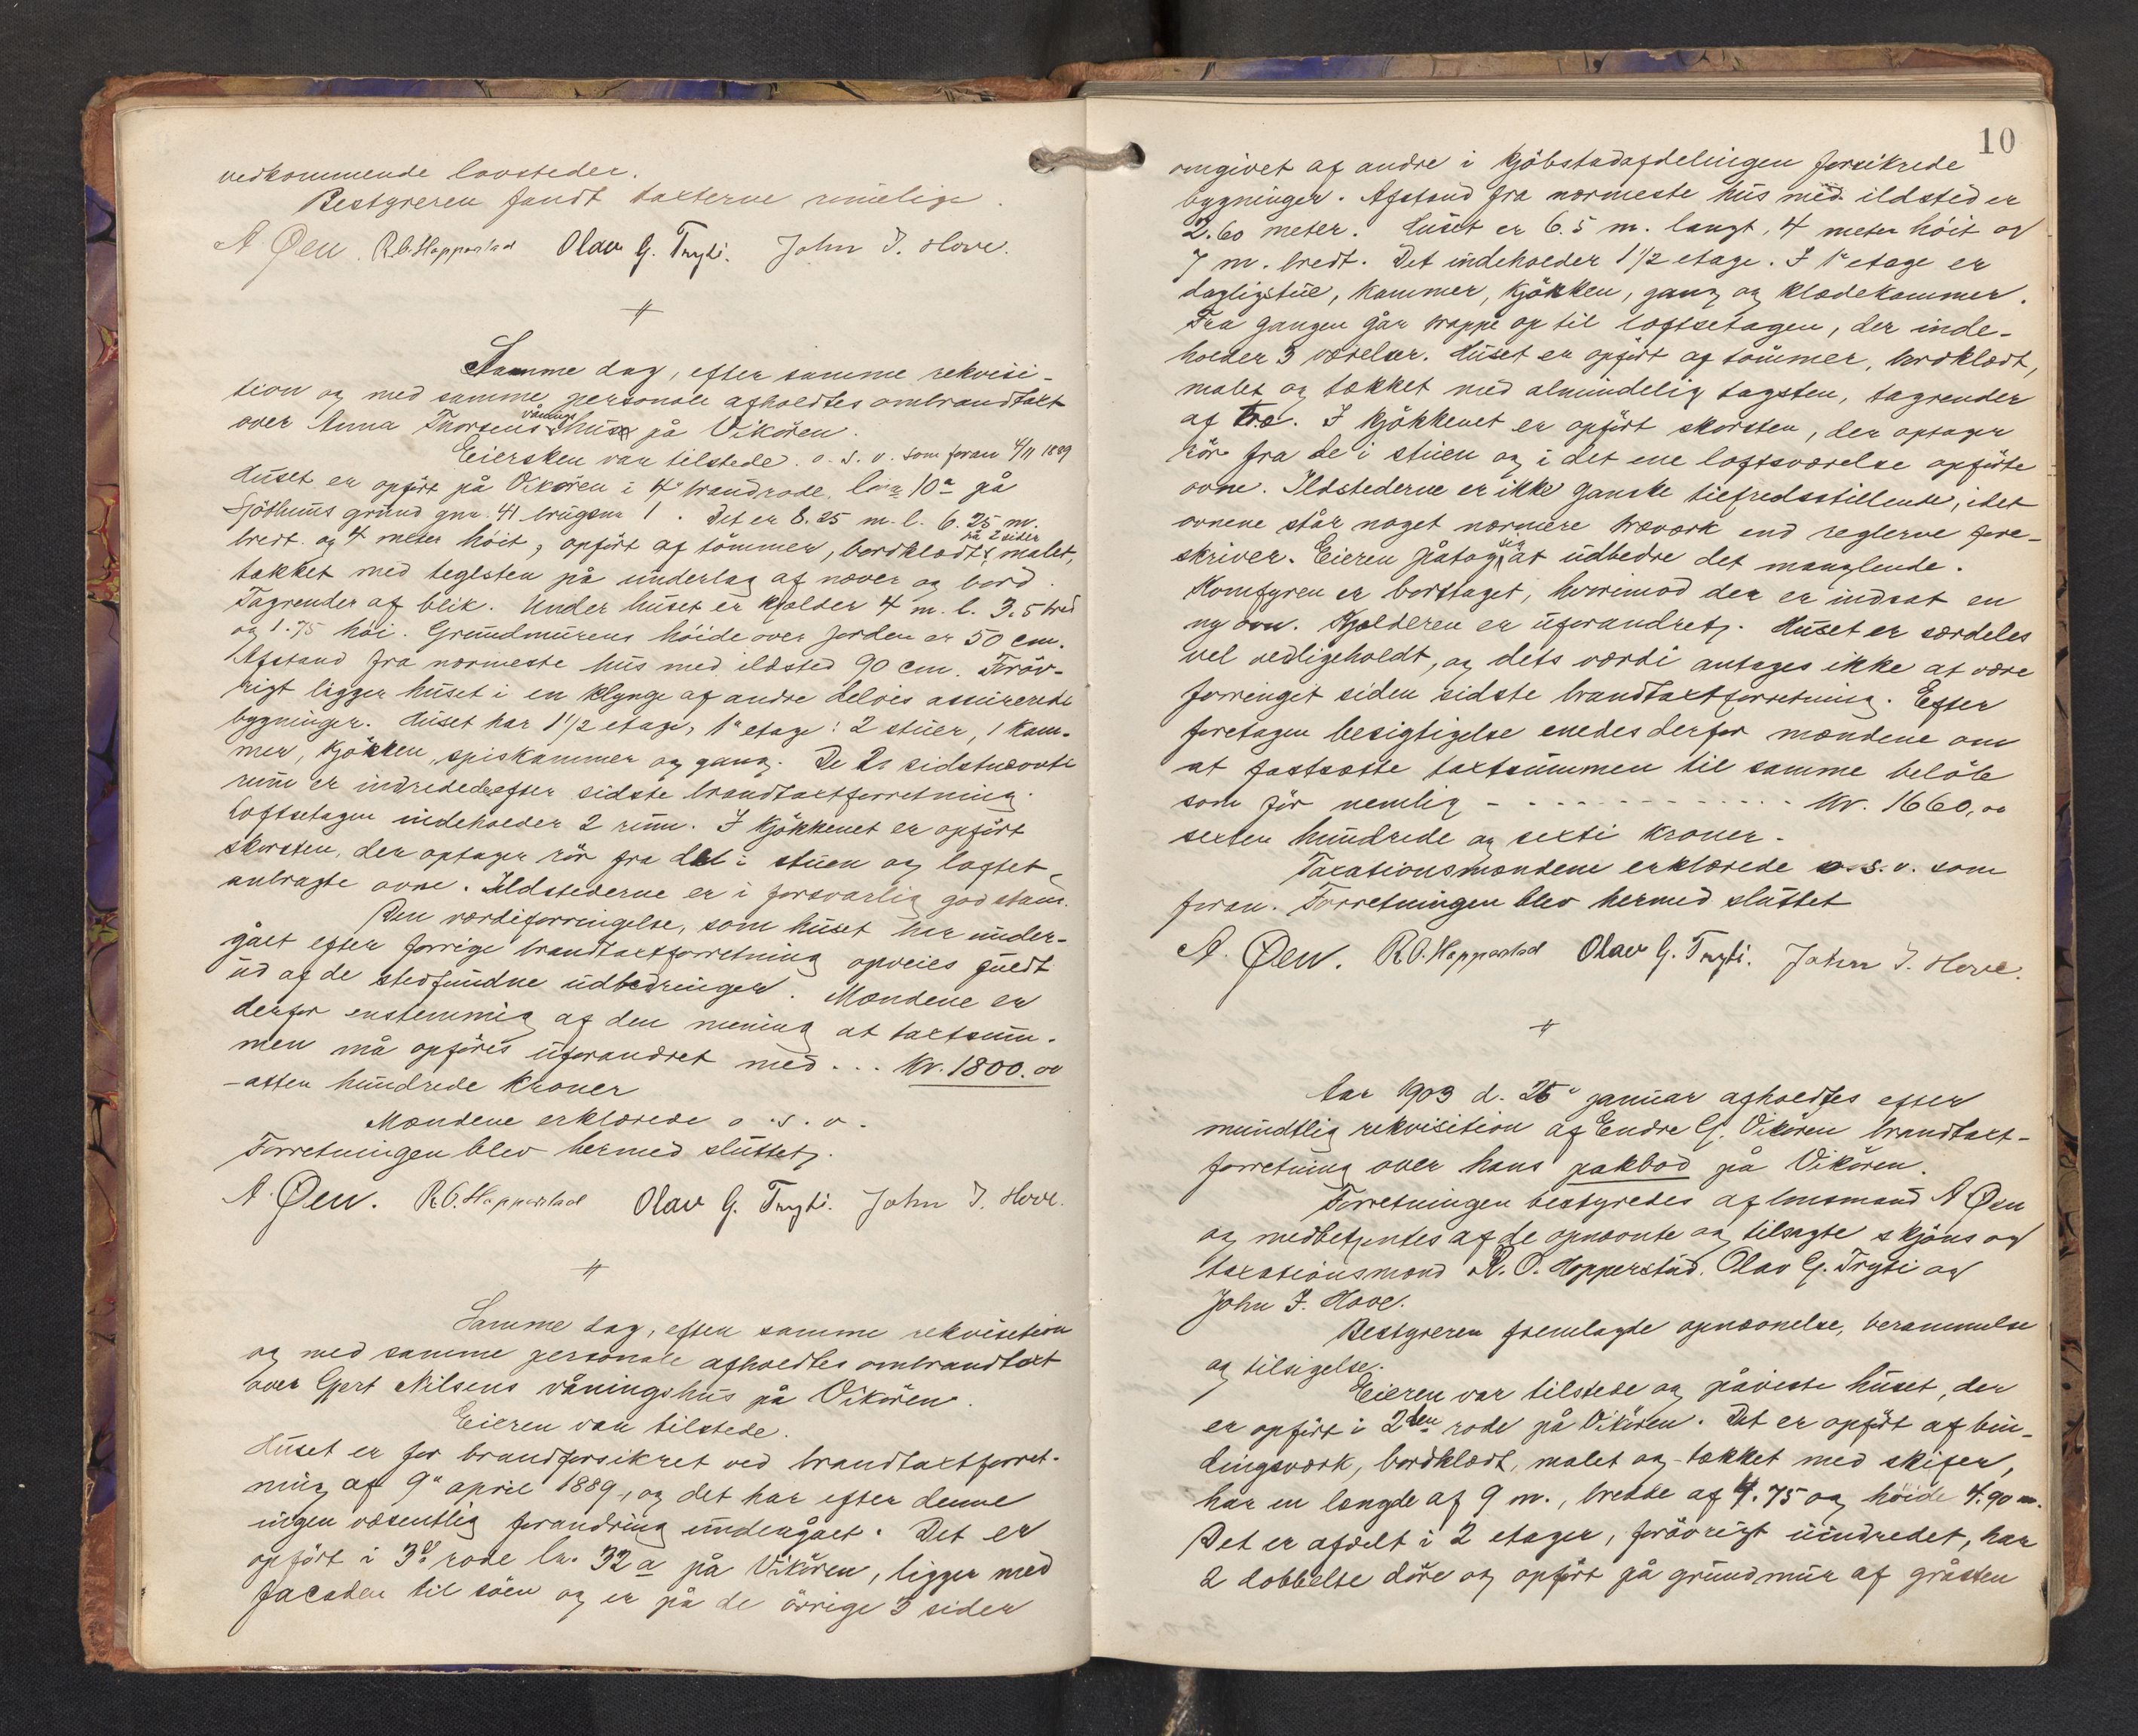 vedkommende lovsteder.
Bestyreren fandt taxterne rimelige.
A Øen. R.O. Hopperstad Olav G. Tryti. John J. Hove.
Samme dag, efter samme rekvisi-
tion og med samme personale afholdtes ombrandtaxt
over Anna Thorsens vånings hus på Vikøren.
Eiersken var tilstede. o. s. v. som foran 4/11 1889
Huset er opført på Vikøren i 4de brandrode, 10a på
grund gnr. 41 brugsnr 1. Det er 8.25 m. l. 6.25 m.
bredt og 4 meter høit, opført af tømmer, bordklædt på 2 sider, malet,
tækket med teglsten på underlag af næver og bord.
Tagrender af blik. Under huset er kjælder 4 m. l. 3.5 bred
og 1.75 høi. Grundmurens høide over jorden er 50 cm.
Afstand fra nærmeste hus med ildsted 90 cm. Forøv-
rigt ligger huset i en klynge af andre delvis assurerede
bygninger. Huset har 1 1/2 etage, 1ste etage: 2 stuer, 1 kam-
mer, kjøkken, spiskammer og gang. De 2 sidstnævnte
rum er indredede efter sidste brandtaxtforretning.
Loftsetagen indeholder 2 rum. I kjøkkenet er opført
skorsten, der optager rør fra de i stuen og loftet
anbragte ovne. Ildstederne er i forsvarlig god stand.
Den værdiforringelse, som huset har under-
gået efter forrige brandtaxtforretning opveies fuldt
ud af de stedfundne udbedringer. Mændene er
derfor enstemmig af den mening at taxtsum-
men må opføres uforandret med ... Kr. 1800.00
-atten hundrede kroner
Mændene erklærede o. s. v.
Forretningen blev hermed sluttet.
A. Øen. R.O. Hopperstad Olav G. Tryti. John J. Hove.
Samme dag, efter samme rekvisition
og med samme personale afholdtes ombrandtaxt
over Gjert Nilsens våningshus på Vikøren.
Eieren var tilstede.
Huset er før brandforsikret ved brandtaxtforret-
ning af 9de april 1889, og det har efter denne
ingen væsentlig forandring undergået. Det er
opført i 3die rode 32 a på Vikøren, ligger med
facaden til søen og er på de øvrige 3 sider
10
omgivet af andre i kjøbstadafdelingen forsikrede
bygninger. Afstand fra nærmeste hus med ildsted er
2.60 meter. Huset er 6.5 m. langt, 4 meter høit og
7 m. bredt. Det indeholder 1 1/2 etage. I 1ste etage er
dagligstue, kammer, kjøkken, gang og klædekammer.
Fra gangen går trappe op til loftsetagen, der inde-
holder 3 værelser. Huset er opført af tømmer, bordklædt,
malet og tækket med almindelig tagsten, tagrender
af træ. I kjøkkenet er opført skorsten, der optager
rør fra de i stuen og i det ene loftsværelse opførte
ovne. Ildstederne er ikke ganske tilfredsstillende, idet
ovnene står noget nærmere træværk end reglerne fore-
skriver. Eieren påtog sig at udbedre det manglende.
Komfyren er borttaget, hvorimod der er indsat en
ny ovn. Kjælderen er uforandret. Huset er særdeles
vel vedligeholdt, og dets værdi antages ikke at være
forringet siden sidste brandtaxtforretning. Efter
foretagen besigtigelse enedes derfor mændene om
at fastsætte taxtsummen til samme beløb
som før nemlig - - - - - - - - - - - - Kr. 1660,00
sexten hundrede og sexti kroner.
Taxationsmændene erklærede o. s. v. som
foran. Forretningen blev hermed sluttet
A. Øen. R.O. Hopperstad Olav G. Tryti. John J. Hove.
Aar 1903 d. januar afholdtes efter
mundtlig rekvisition af Endre G. Vikøren brandtaxt-
forretning over hans pakbod på Vikøren.
Forretningen bestyredes af lensmand A Øen
og medbetjentes af de opnævnte og tilsagte skjøns og
taxationsmænd R. O. Hopperstad, Olav G. Tryti og
John J. Hove.
Bestyreren fremlagde opnævnelse, berammelse
og tilsigelse.
Eieren var tilstede og påviste huset, der
er opført i 2den rode på Vikøren. Det er opført af bin-
dingsværk, bordklædt, malet og tækket med skifer,
har en længde af 9 m., bredde af 4.75 og høide 4.90 m.
Det er afdelt i 2 etager, forøvrigt uindredet, har
2 dobbelte døre og opført på grundmur af gråsten